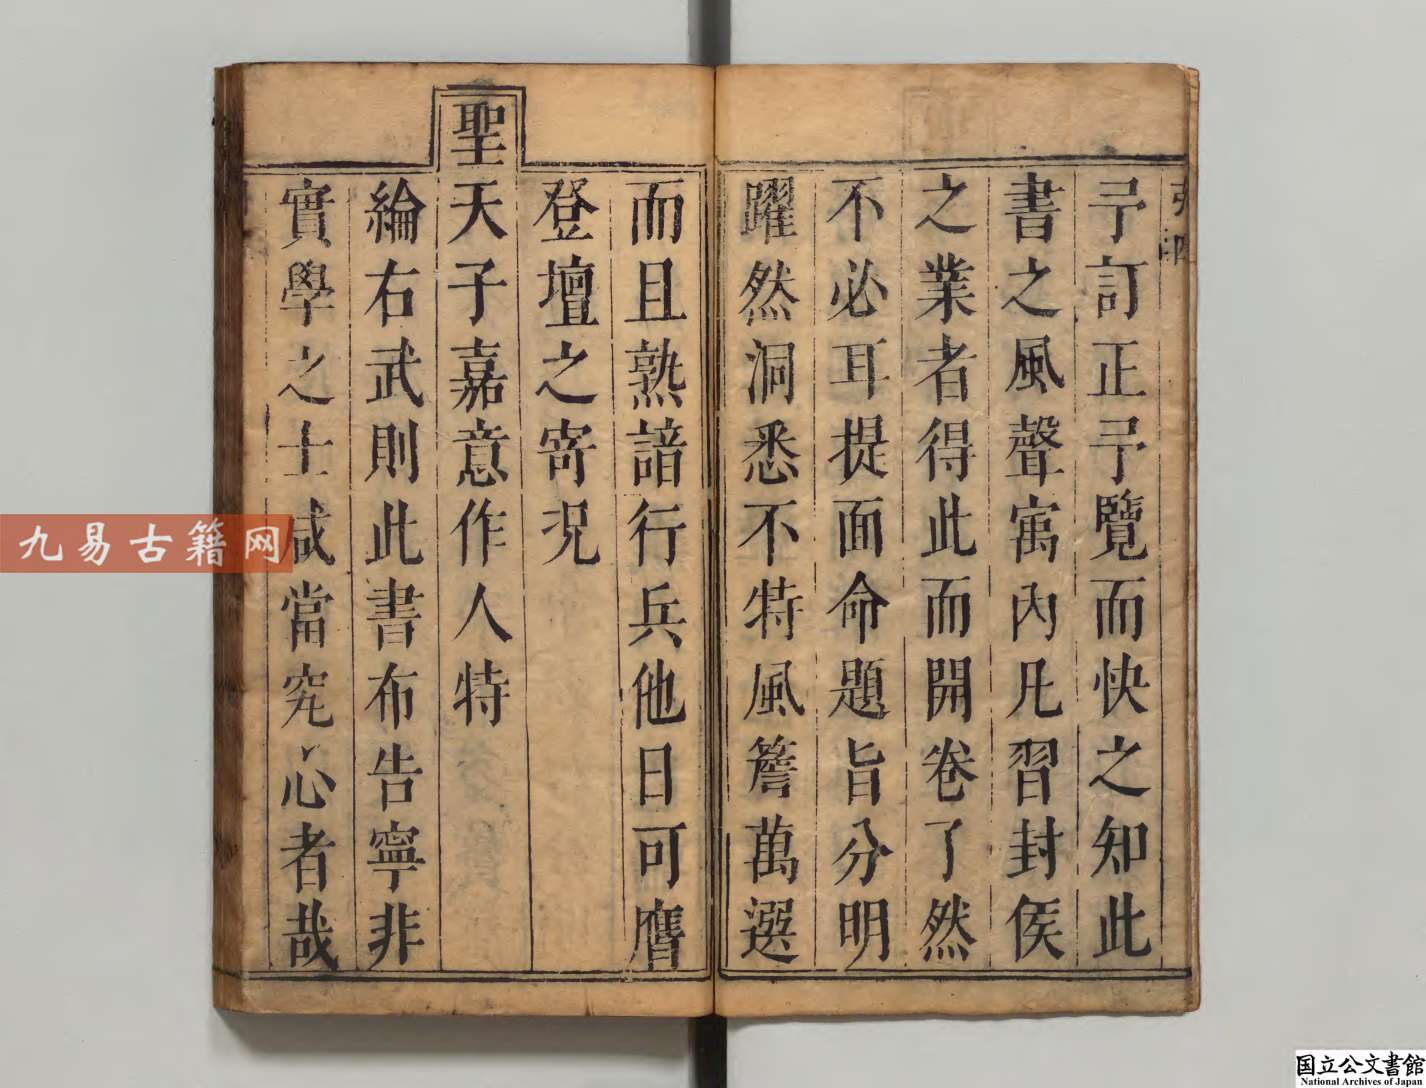 予訂正予覽而快之知此
書之風聲寓內凡習封侯
之業者得此而開卷了然
不必耳提面命題旨分明
躍然洞悉不特風簷萬選
而且熟諳行兵他日可膺
登壇之寄況
聖天子嘉意作人特
綸右武則此書布告寧非
實學之士咸當究心者哉
九易古籍网
国立公文書館
National Archives of Japan